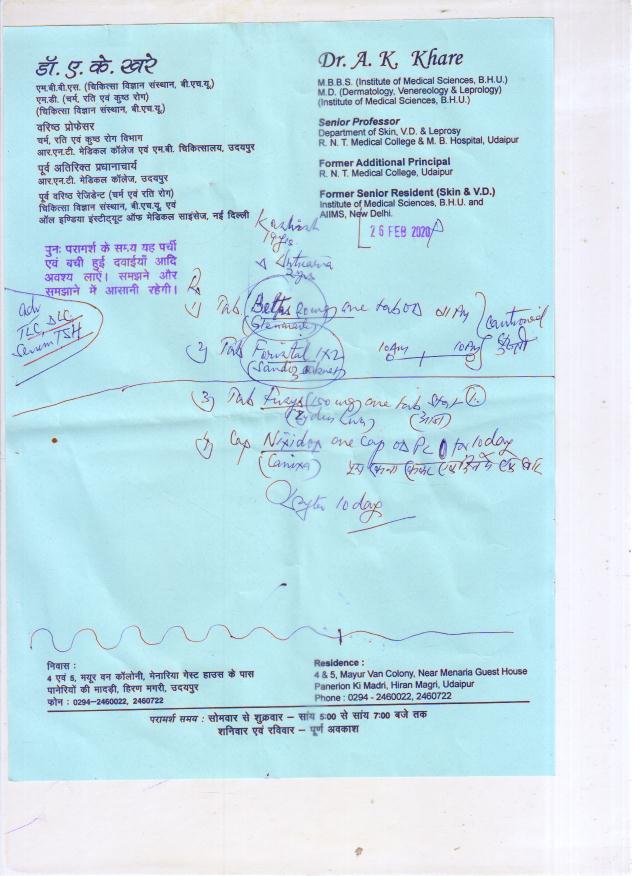 डॉ. ए. के. खरे
एम.बी.बी.एस. (चिकित्सा विज्ञान संस्थान, बी.एच.यू.)
एम.डी. (चर्म, रति एवं कुष्ठ रोग)
(चिकित्सा विज्ञान संस्थान, बी.एच.यू.)
वरिष्ठ प्रोफेसर
चर्म, रति एवं कुष्ठ रोग विभाग
आर.एन.टी. मेडिकल कॉलेज एवं एम.बी. चिकित्सालय, उदयपुर
पूर्व अतिरिक्त प्रधानाचार्य
आर.एन.टी. मेडिकल कॉलेज, उदयपुर
पूर्व वरिष्ठ रेजिडेन्ट (चर्म एवं रति रोग)
चिकित्सा विज्ञान संस्थान, बी.एच.यू. एवं
ऑल इण्डिया इंस्टीट्यूट ऑफ मेडिकल साइंसेज, नई दिल्ली
Dr. A. K. Khare
M.B.B.S. (Institute of Medical Sciences, B.H.U.)
M.D. (Dermatology, Venereology & Leprology)
(Institute of Medical Sciences, B.H.U.)
Senior Professor
Department of Skin, V.D. & Leprosy
R. N. T. Medical College & M. B. Hospital, Udaipur
Former Additional Principal
R. N. T. Medical College, Udaipur
Former Senior Resident (Skin & V.D.)
Institute of Medical Sciences, B.H.U. and
AIIMS, New Delhi.
26 FEB 2020
पुनः परामर्श के समय यह पर्ची
एवं बची हुई दवाईयाँ आदि
अवश्य लाएं। समझने और
समझाने में आसानी रहेगी।
adv
TLC, DLC
Serum TSH
1) Tab one tab OD
2) Tab
10 Am 10 Pm
3) Tab one tab Stat
4) Cap one cap OD PC for 10 day
after 10 days
निवास :
4 एवं 5, मयूर वन कॉलोनी, मेनारिया गेस्ट हाउस के पास
पानेरियों की मादड़ी, हिरण मगरी, उदयपुर
फोन : 0294-2460022, 2460722
Residence :
4 & 5, Mayur Van Colony, Near Menaria Guest House
Panerion Ki Madri, Hiran Magri, Udaipur
Phone : 0294 - 2460022, 2460722
परामर्श समय : सोमवार से शुक्रवार – सांय 5:00 से सांय 7:00 बजे तक
शनिवार एवं रविवार – पूर्ण अवकाश